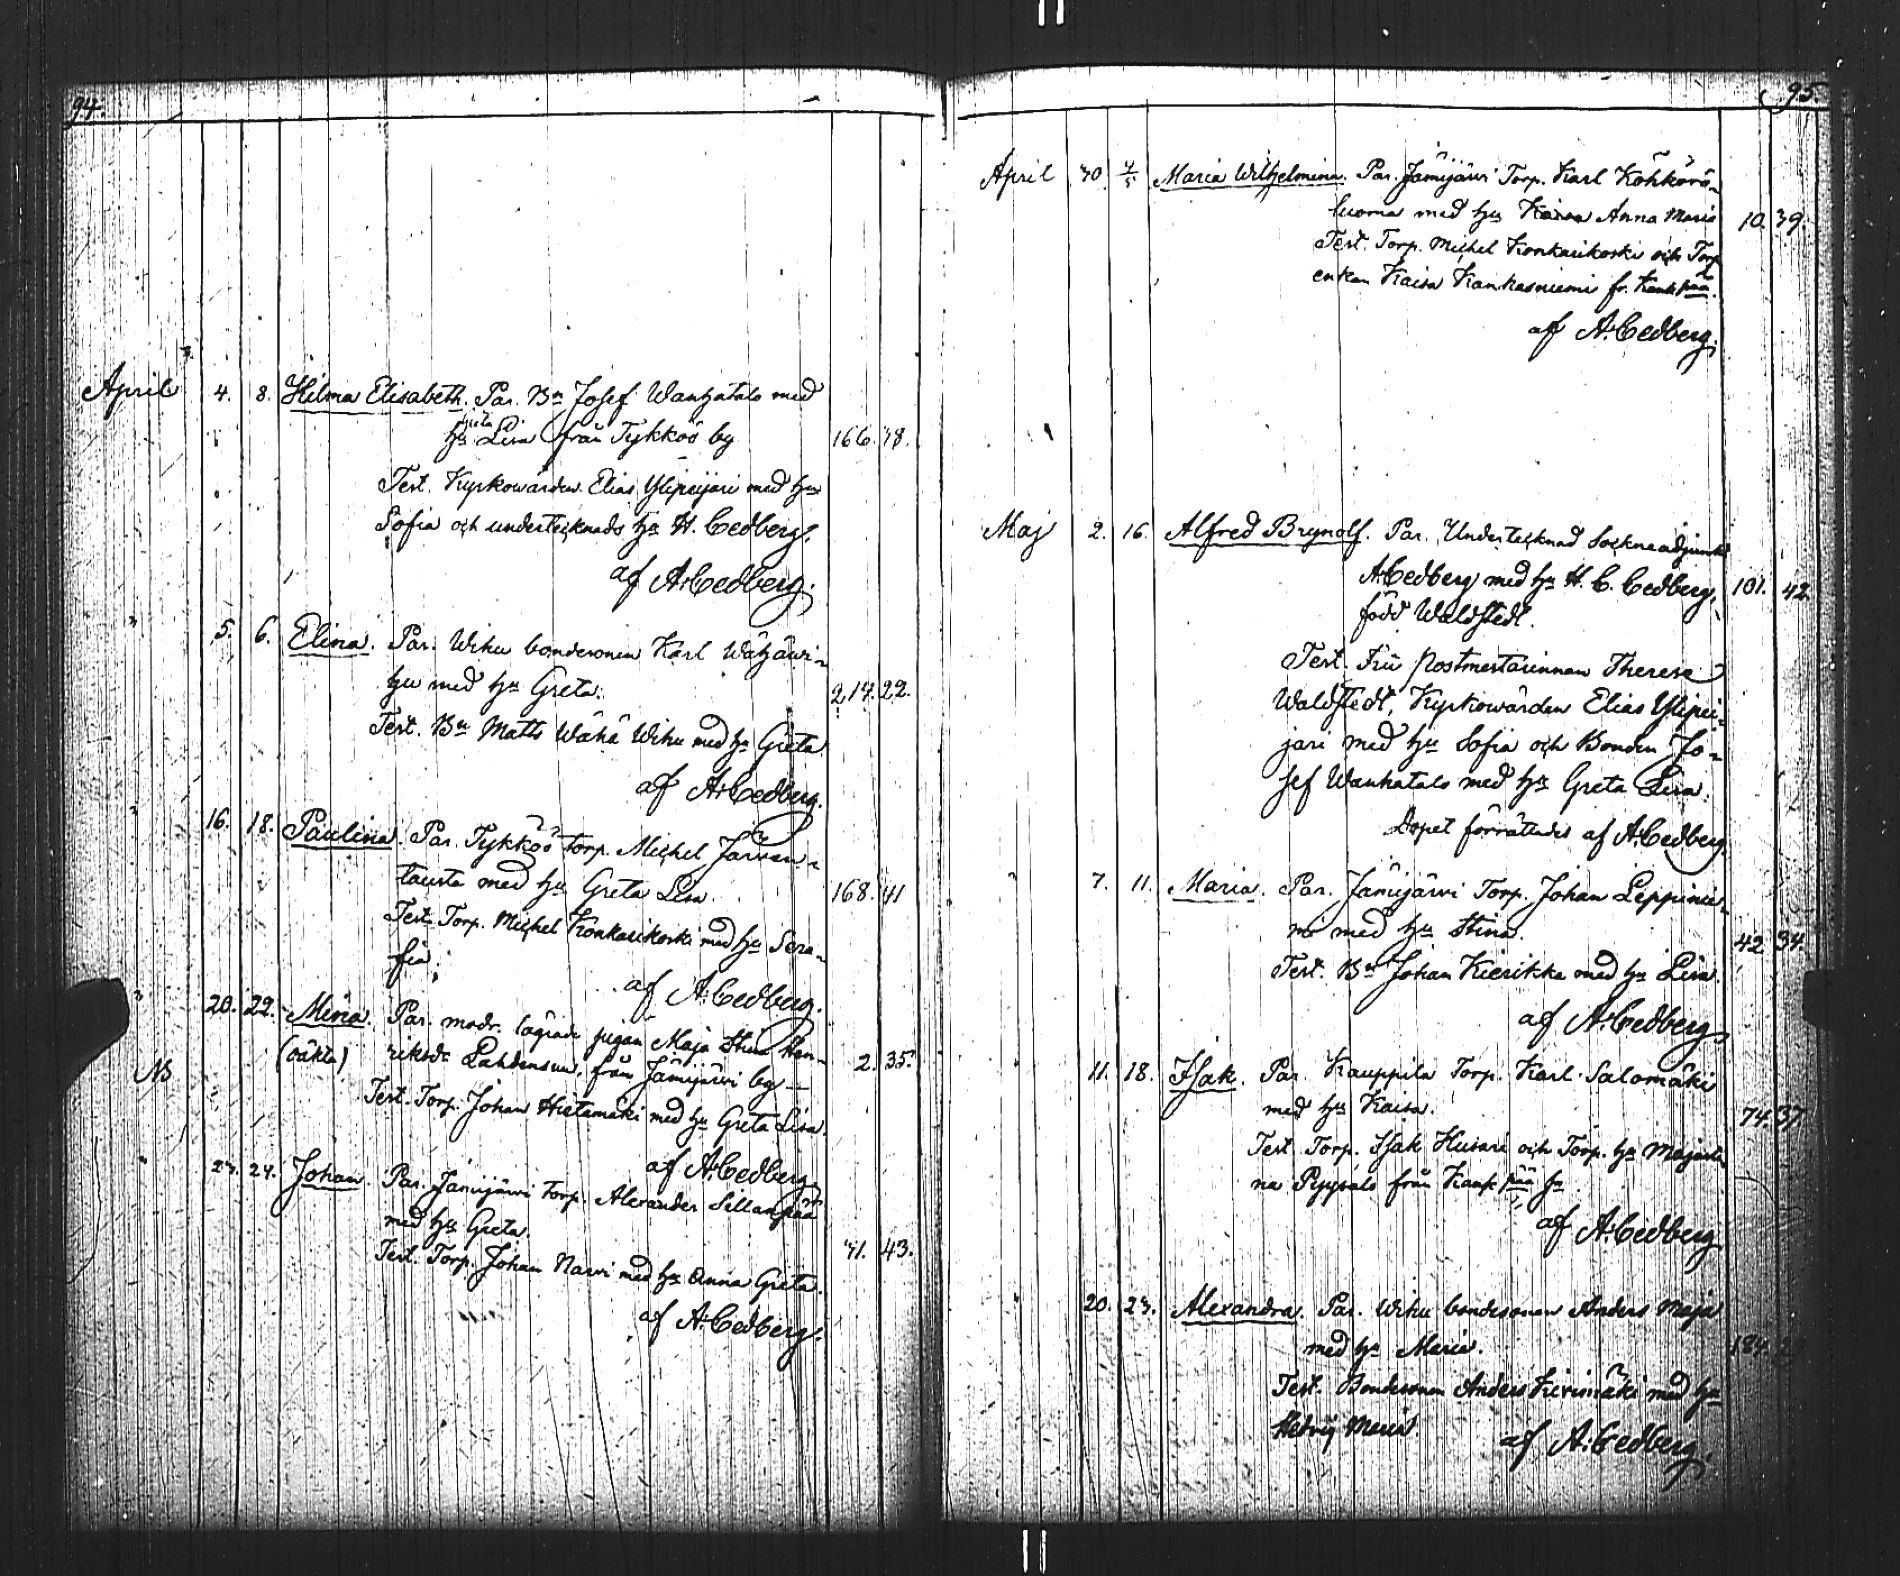 94.
April 4. 8. Hilma Elisabeth. Par. Bn Josef Wanhatalo med
hu Greta Lisa från Tykköö by 166. 38.
Test. Kyrkowärden Elias Ylipeijari med hu
Sofia och undertecknads hu H. Cedberg.
af A. Cedberg.
" 5. 6. Elina. Par. Wihu bondesonen Karl Wähäwi-
hu med hu Greta. 217. 22.
Test. Bn Matts Wähä Wihu med hu Greta
af A. Cedberg.
" 16. 18. Paulina. Par. Tykköö Torp. Michel Järven-
tausta med hu Greta Lisa. 168. 41
Test. Torp. Michel Konkarikoski med hu Sera-
fia.
af A. Cedberg.
" 20. 22. Miina. Par. modr. lägrade pigan Maja Stina Hen-
NB (oäkta) riksdr Lahdensuu, från Jämijärvi by — 2. 35.
Test. Torp. Johan Hietamäki med hu Greta Lisa.
af A. Cedberg.
" 23. 24. Johan. Par. Jämijärvi Torp. Alexander Sillanpää
med hu Greta. 31. 43.
Test. Torp. Johan Narvi med hu Anna Greta.
af A. Cedberg.
95.
April 30. 4/5 Maria Wilhelmina. Par. Jämijärvi Torp. Karl Köhkörö-
luoma med hu Anna Maria 10. 39.
Test. Torp. Michel Konkarikoski och Torp
enkan Kaisa Kankasniemi fr. Kankpää.
af A. Cedberg.
Maj 2. 16. Alfred Brynolf. Par. Undertecknad Sockneadjunkt
A. Cedberg med hu H. C. Cedberg, 101. 42.
född Waldstedt.
Test. Fru Postmestarinnan Therese
Waldstedt, Kyrkowärden Elias Ylipei-
jari med hu Sofia och Bonden Jo-
sef Wanhatalo med hu Greta Lisa.
Dopet förrättades af A. Cedberg.
" 7. 11. Maria. Par. Jämijärvi Torp. Johan Leppinie-
mi med hu Stina. 42. 34.
Test. Bn Johan Kierikka med hu Lisa.
af A. Cedberg
" 11. 18. Isak. Par. Kauppila Torp. Karl Salomäki
med hu Kaisa. 74. 37.
Test. Torp. Isak Husari och Torp. hu Majasti-
na från Kankpää sn
af A. Cedberg
" 20. 23. Alexandra. Par. Wihu bondesonen Anders Maja
med hu Maria. 184.
Test. Bondesonen Anders Kivimäki med hu
Hedvig Maria.
af A. Cedberg.